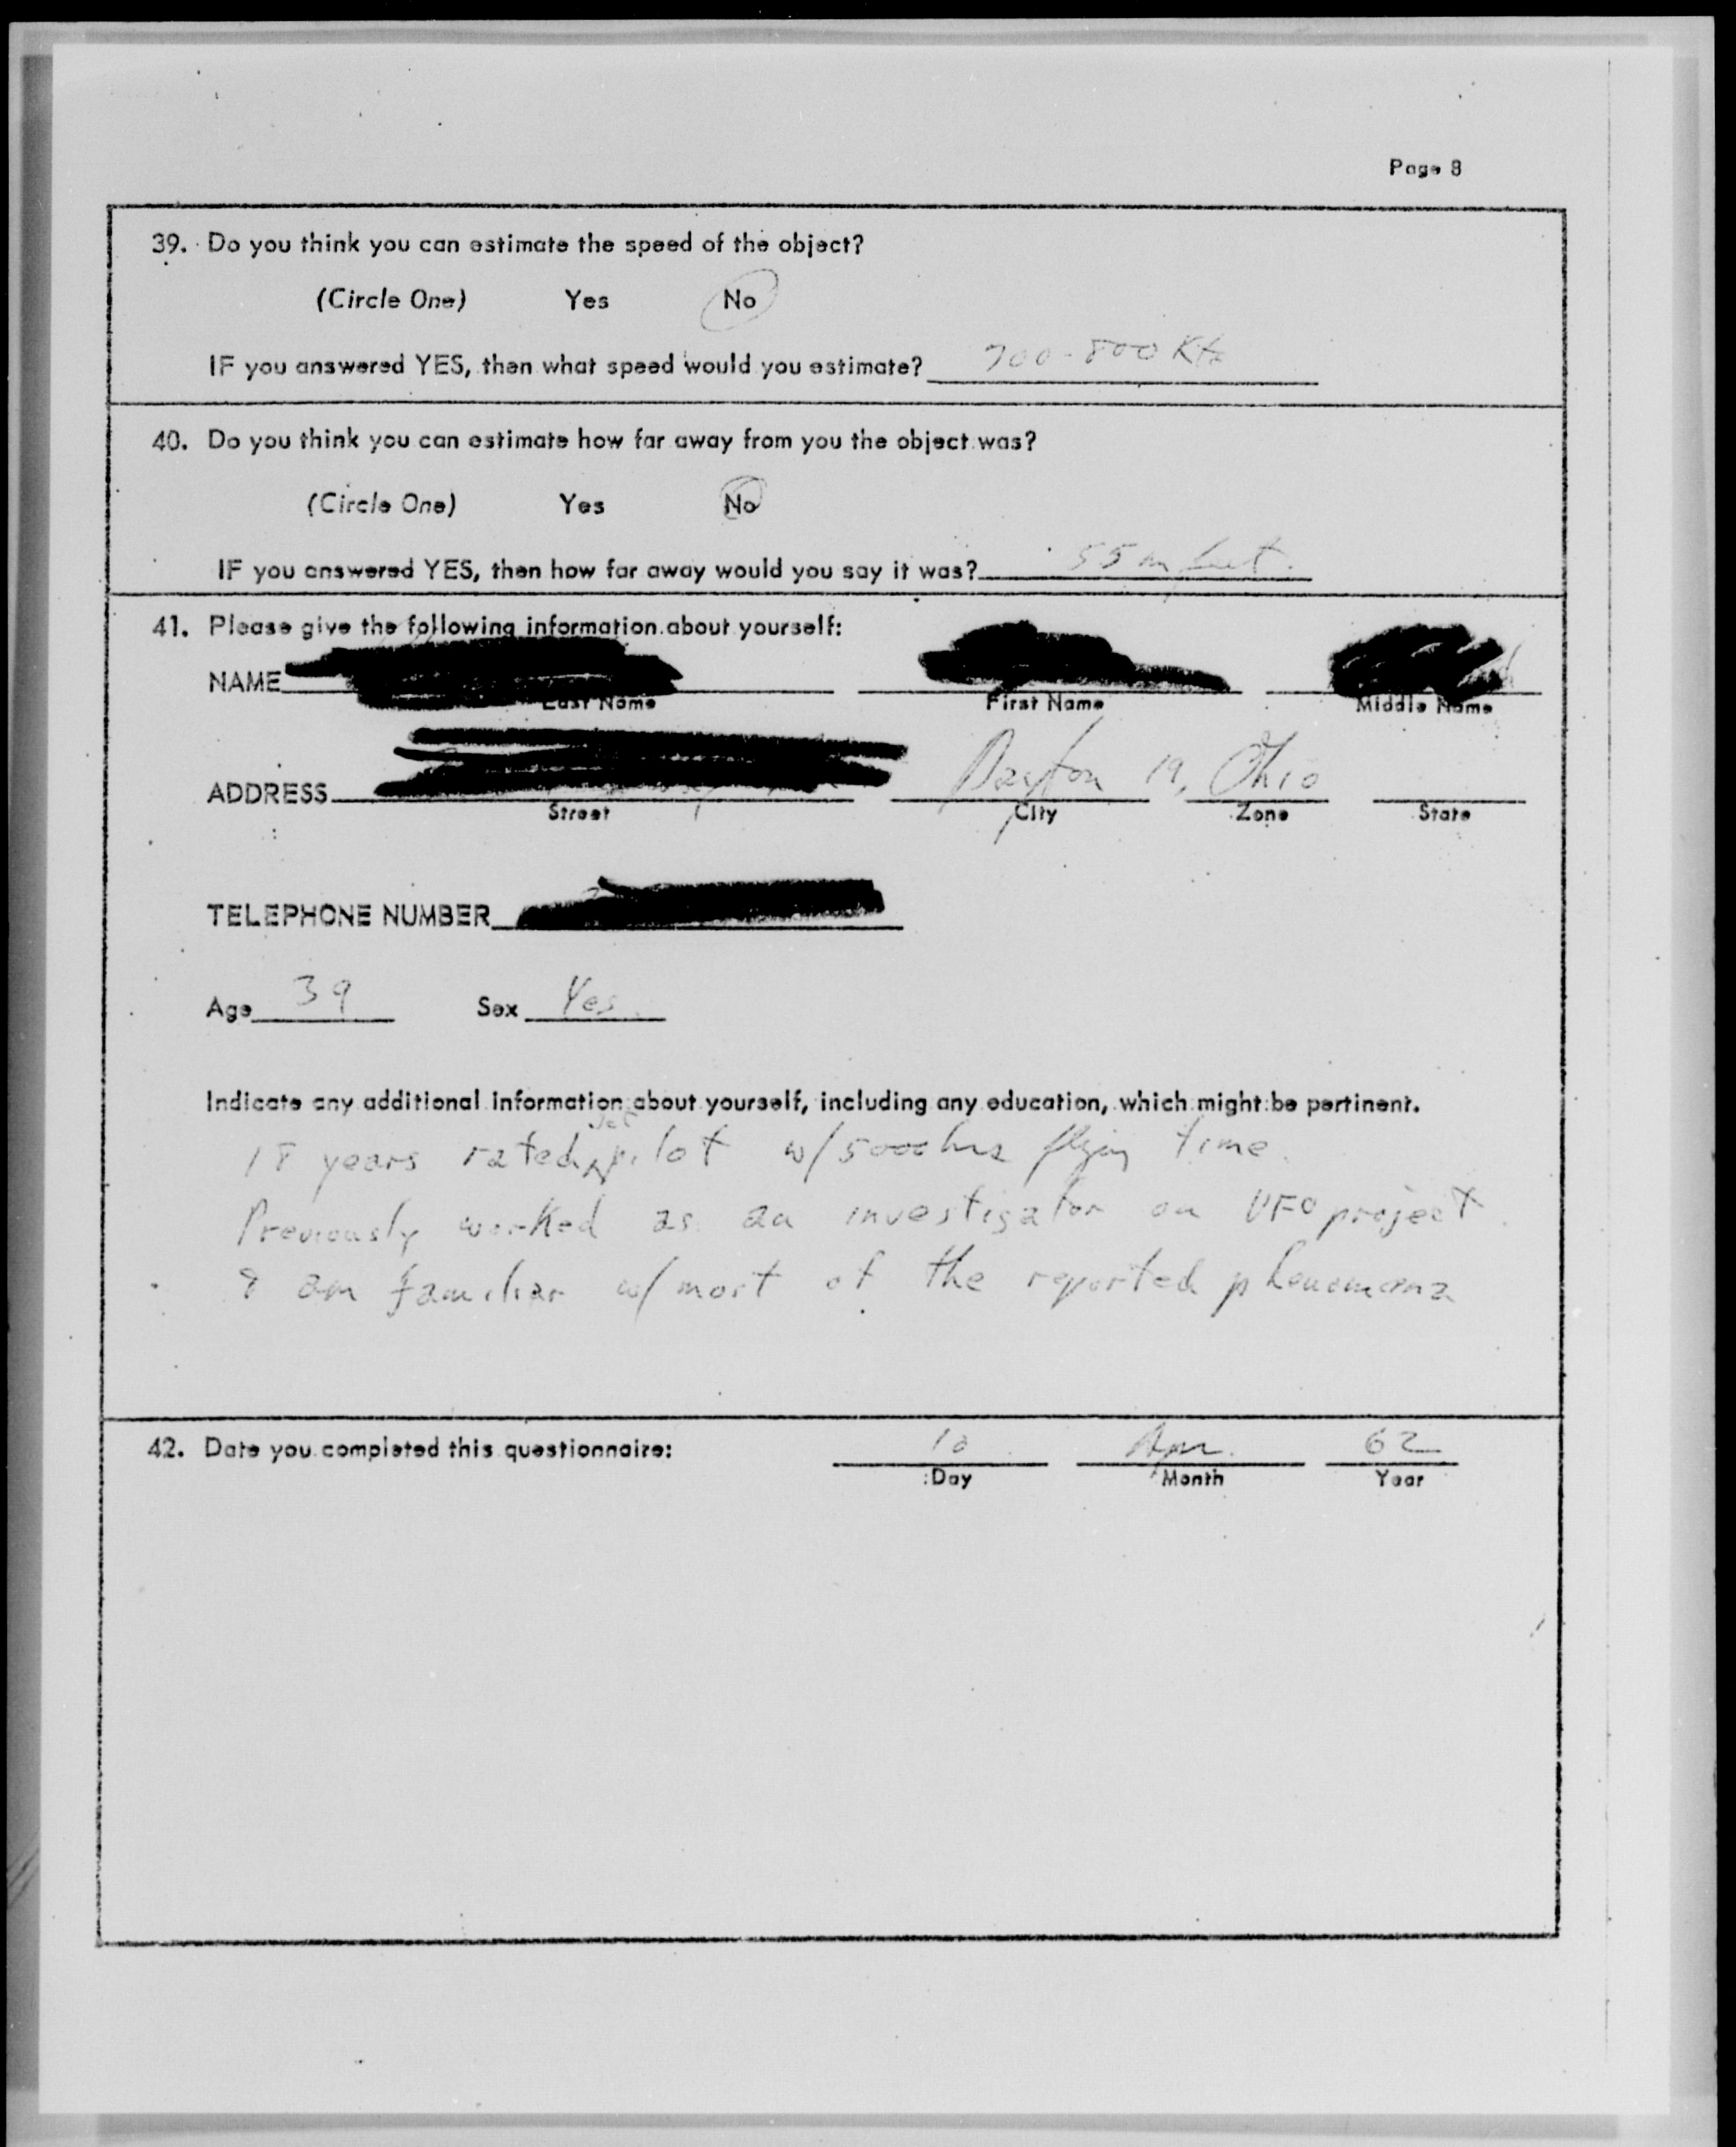 Page 8
39. Do you think you can estimate the speed of the object?
(Circle One) Yes No
IF you answered YES, then what speed would you estimate? 700-800 Kts
40. Do you think you can estimate how far away from you the object was?
(Circle One) Yes No
IF you answered YES, then how far away would you say it was? 55 m feet.
41. Please give the following information about yourself:
NAME
Last Name First Name Middle Name
ADDRESS Dayton 19, Ohio
Street City Zone State
TELEPHONE NUMBER
Age 39 Sex Yes
Indicate any additional information about yourself, including any education, which might be pertinent.
Jet
18 years rated pilot w/5000 hrs flying time.
Previously worked as an investigator on UFO project.
I am familiar w/most of the reported phenomena
42. Date you completed this questionnaire: Apr. 62
Day Month Year